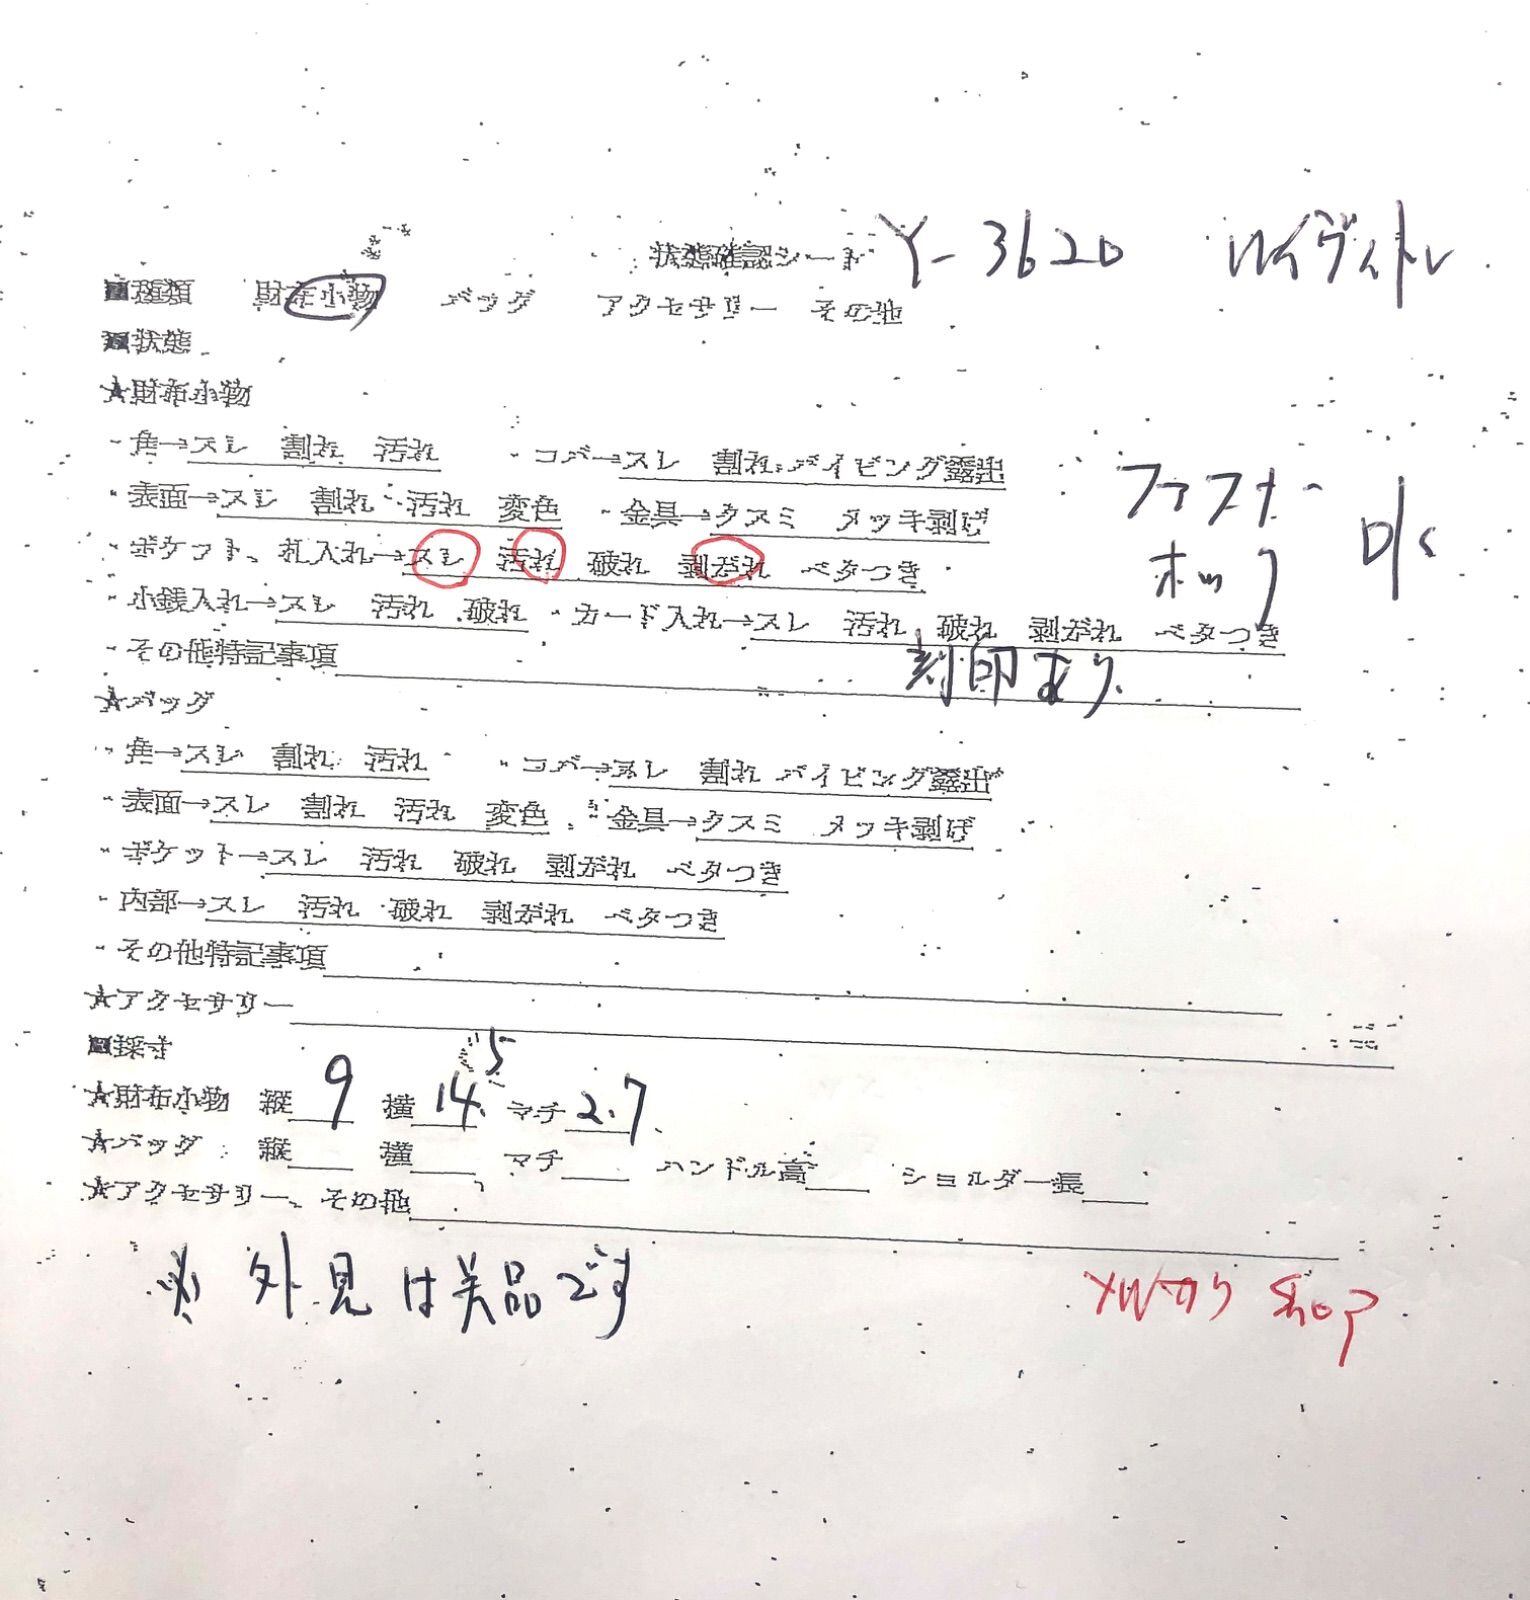 状態確認シート Y-3620 ルイヴィトン
■種類 財布小物 バッグ アクセサリー その他
■状態
★財布小物
・角→スレ 割れ 汚れ ・コバ→スレ 割れ パイピング露出
・表面→スレ 割れ 汚れ 変色 ・金具→クスミ メッキ剥げ
ファスナー
ホック
・ポケット、札入れ→スレ 汚れ 破れ 剥がれ ベタつき
・小銭入れ→スレ 汚れ 破れ ・カード入れ→スレ 汚れ 破れ 剥がれ ベタつき
・その他特記事項 刻印あり
★バッグ
・角→スレ 割れ 汚れ ・コバ→スレ 割れ パイピング露出
・表面→スレ 割れ 汚れ 変色 ・金具→クスミ メッキ剥げ
・ポケット→スレ 汚れ 破れ 剥がれ ベタつき
・内部→スレ 汚れ 破れ 剥がれ ベタつき
・その他特記事項
★アクセサリー
■採寸
★財布小物 縦 9 横 14.5 マチ 2.7
★バッグ 縦 横 マチ ハンドル高 ショルダー長
★アクセサリー、その他
※ 外見は美品です
shop